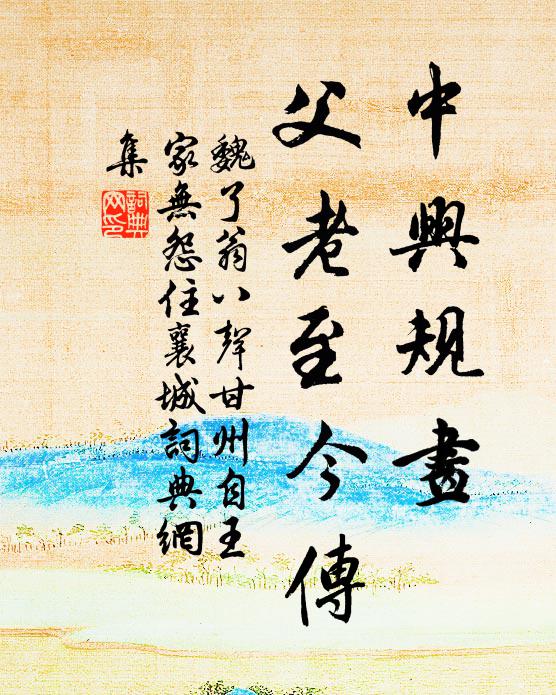 中興規畫
父老至今傳
魏了翁八聲甘州自王
家無怨住襄城詞典網
集
詞典
网印